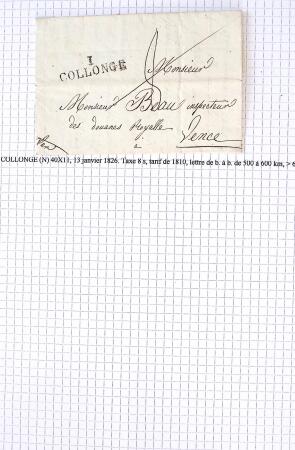 1
COLLONGE
Monsieur
Monsieur Beau inspecteur
des douanes Royalle
à
Vence
COLLONGE (N) 40X11, 13 janvier 1826. Taxe 8 s, tarif de 1810, lettre de b. à b. de 500 à 600 km, > 6